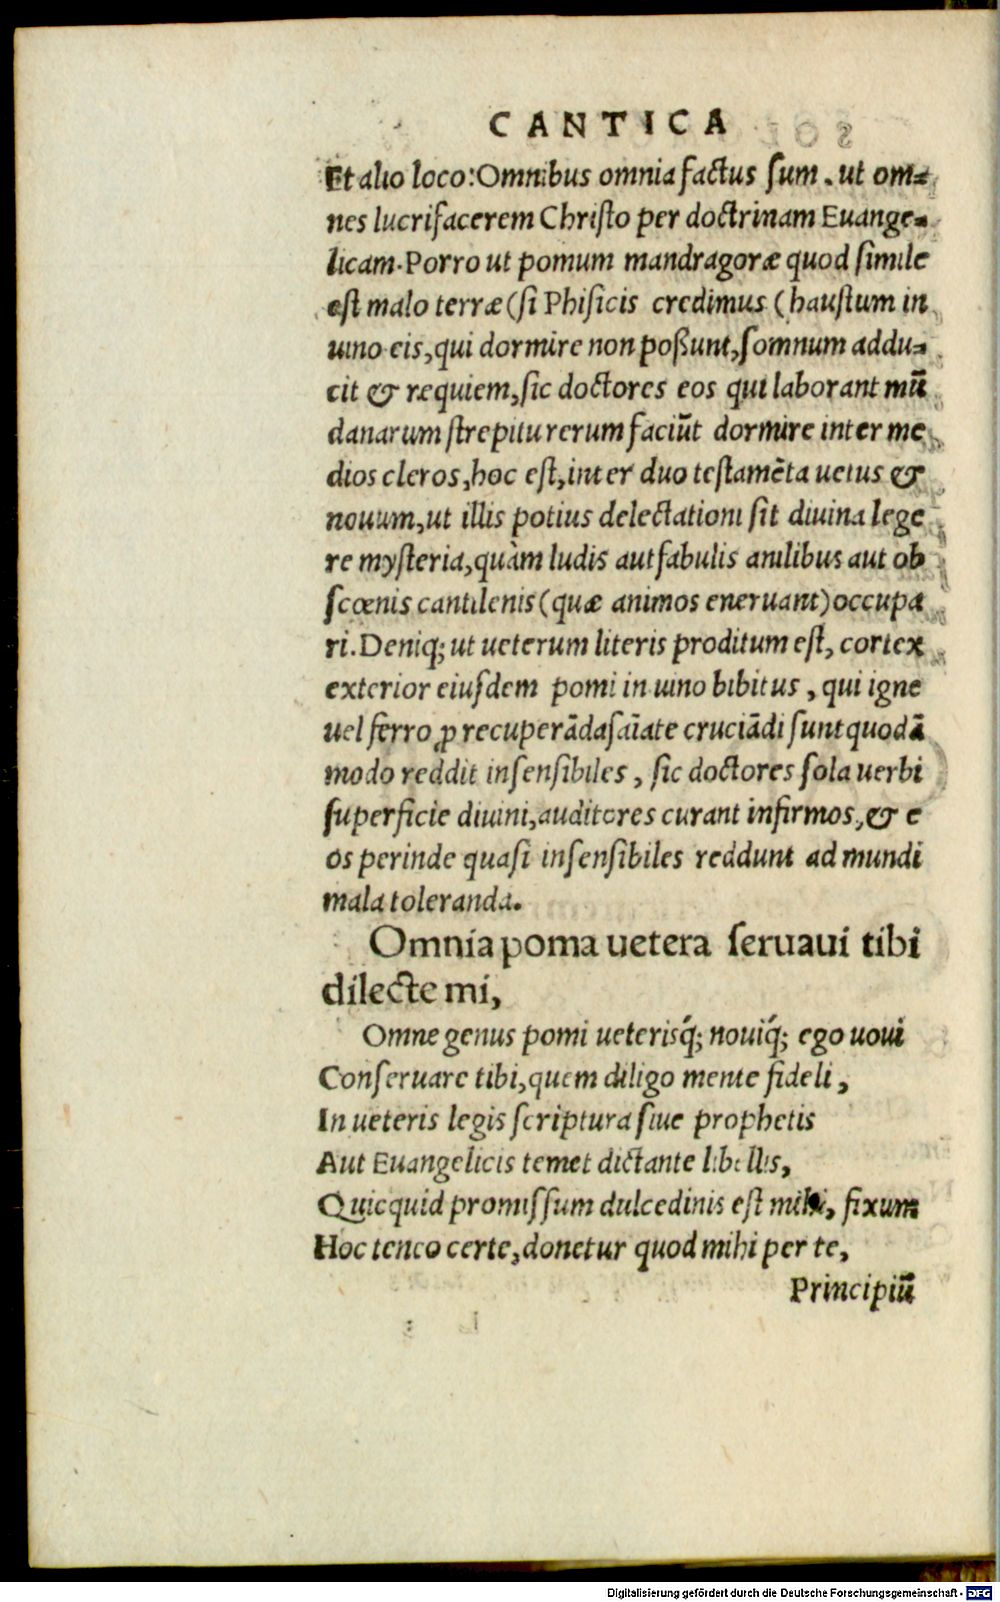 CANTICA
Et alio loco: Omnibus omnia factus sum. ut om-
nes lucrifacerem Christo per doctrinam Euange-
licam. Porro ut pomum mandragoræ quod simile
est malo terræ (si Phisicis credimus ( haustum in
uino eis, qui dormire non poßunt, somnum addu-
cit & ræquiem, sic doctores eos qui laborant mū
danarum strepitu rerum faciūt dormire inter me
dios cleros, hoc est, inter duo testamēta uetus &
nouum, ut illis potius delectationi sit diuina lege
re mysteria, quàm ludis aut fabulis anilibus aut ob
scœnis cantilenis (quæ animos eneruant) occupa
ri. Deniq; ut ueterum literis proditum est, cortex
exterior eiusdem pomi in uino bibitus, qui igne
uel ferro ꝓ recuperāda sāīate cruciādi sunt quodā
modo reddit insensibiles, sic doctores sola uerbi
superficie diuini, auditores curant infirmos, & e
os perinde quasi insensibiles reddunt ad mundi
mala toleranda.
Omnia poma uetera seruaui tibi
dilecte mi,
Omne genus pomi ueterisq́; nouiq́; ego uoui
Conseruare tibi, quem diligo mente fideli,
In ueteris legis scriptura siue prophetis
Aut Euangelicis temet dictante libellis,
Quicquid promissum dulcedinis est mihi, fixum
Hoc teneo certe, donetur quod mihi per te,
Principiū
Digitalisierung gefördert durch die Deutsche Forschungsgemeinschaft - DFG